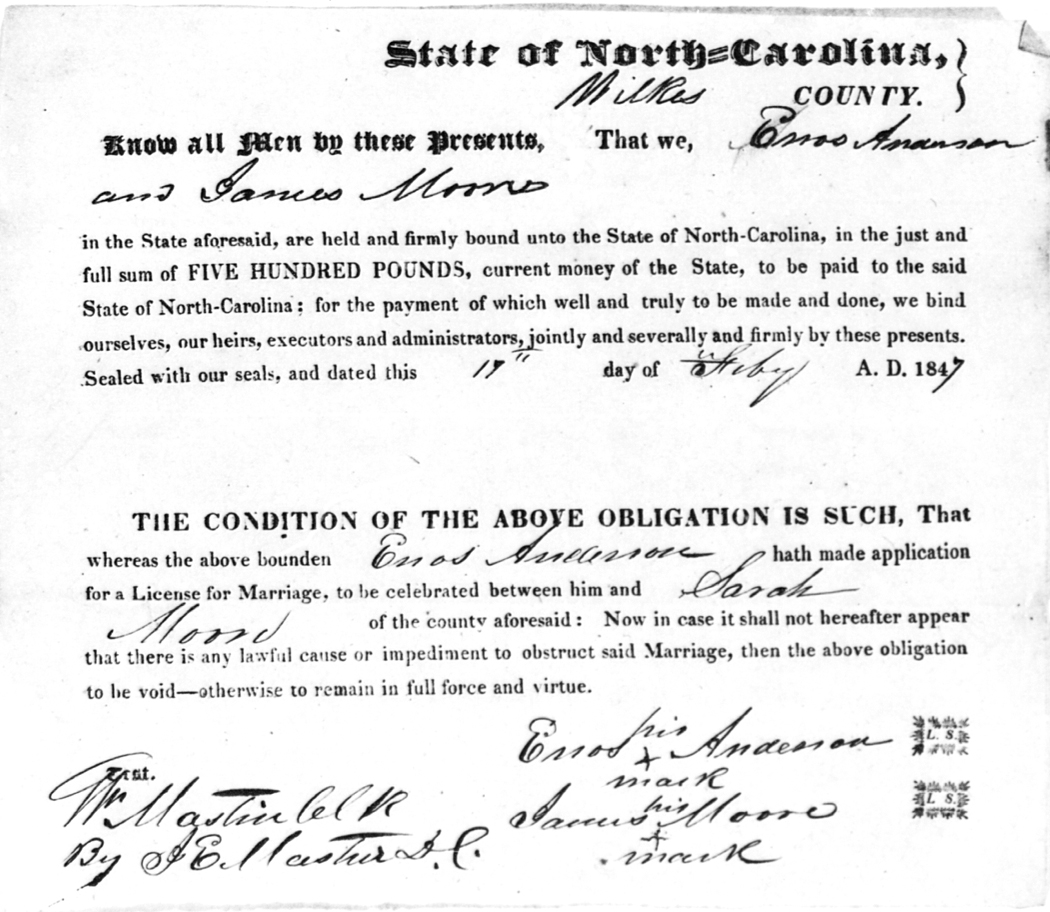 State of North-Carolina,
Wilkes COUNTY.
Know all Men by these Presents, That we, Enos Anderson
and James Moore
in the State aforesaid, are held and firmly bound unto the State of North-Carolina, in the just and
full sum of FIVE HUNDRED POUNDS, current money of the State, to be paid to the said
State of North-Carolina; for the payment of which well and truly to be made and done, we bind
ourselves, our heirs, executors and administrators, jointly and severally and firmly by these presents.
Sealed with our seals, and dated this day of Feby A. D. 1847
THE CONDITION OF THE ABOVE OBLIGATION IS SUCH, That
whereas the above bounden Enos Anderson hath made application
for a License for Marriage, to be celebrated between him and Sarah
Moore of the county aforesaid: Now in case it shall not hereafter appear
that there is any lawful cause or impediment to obstruct said Marriage, then the above obligation
to be void—otherwise to remain in full force and virtue.
Enos his x mark Anderson L. S.
Test.
Wm Mastin Clk
James his x mark Moore L S.
By J E Mastin D. C.